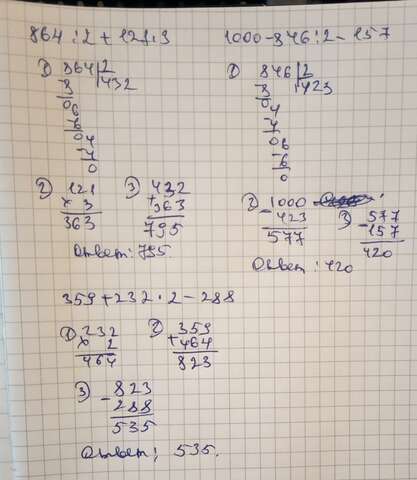 864 : 2 + 121·3
1) 864 | 2
8 | 432
06
6
04
4
0
2) 121
× 3
363
3) 432
+ 363
795
Ответ: 795.
1000 - 846 : 2 - 157
1) 846 | 2
8 | 423
04
4
06
6
0
2) 1000
- 423
577
3) 577
- 157
420
Ответ: 420
359 + 232 · 2 - 288
1) 232
× 2
464
2) 359
+ 464
823
3) 823
- 288
535
Ответ: 535.